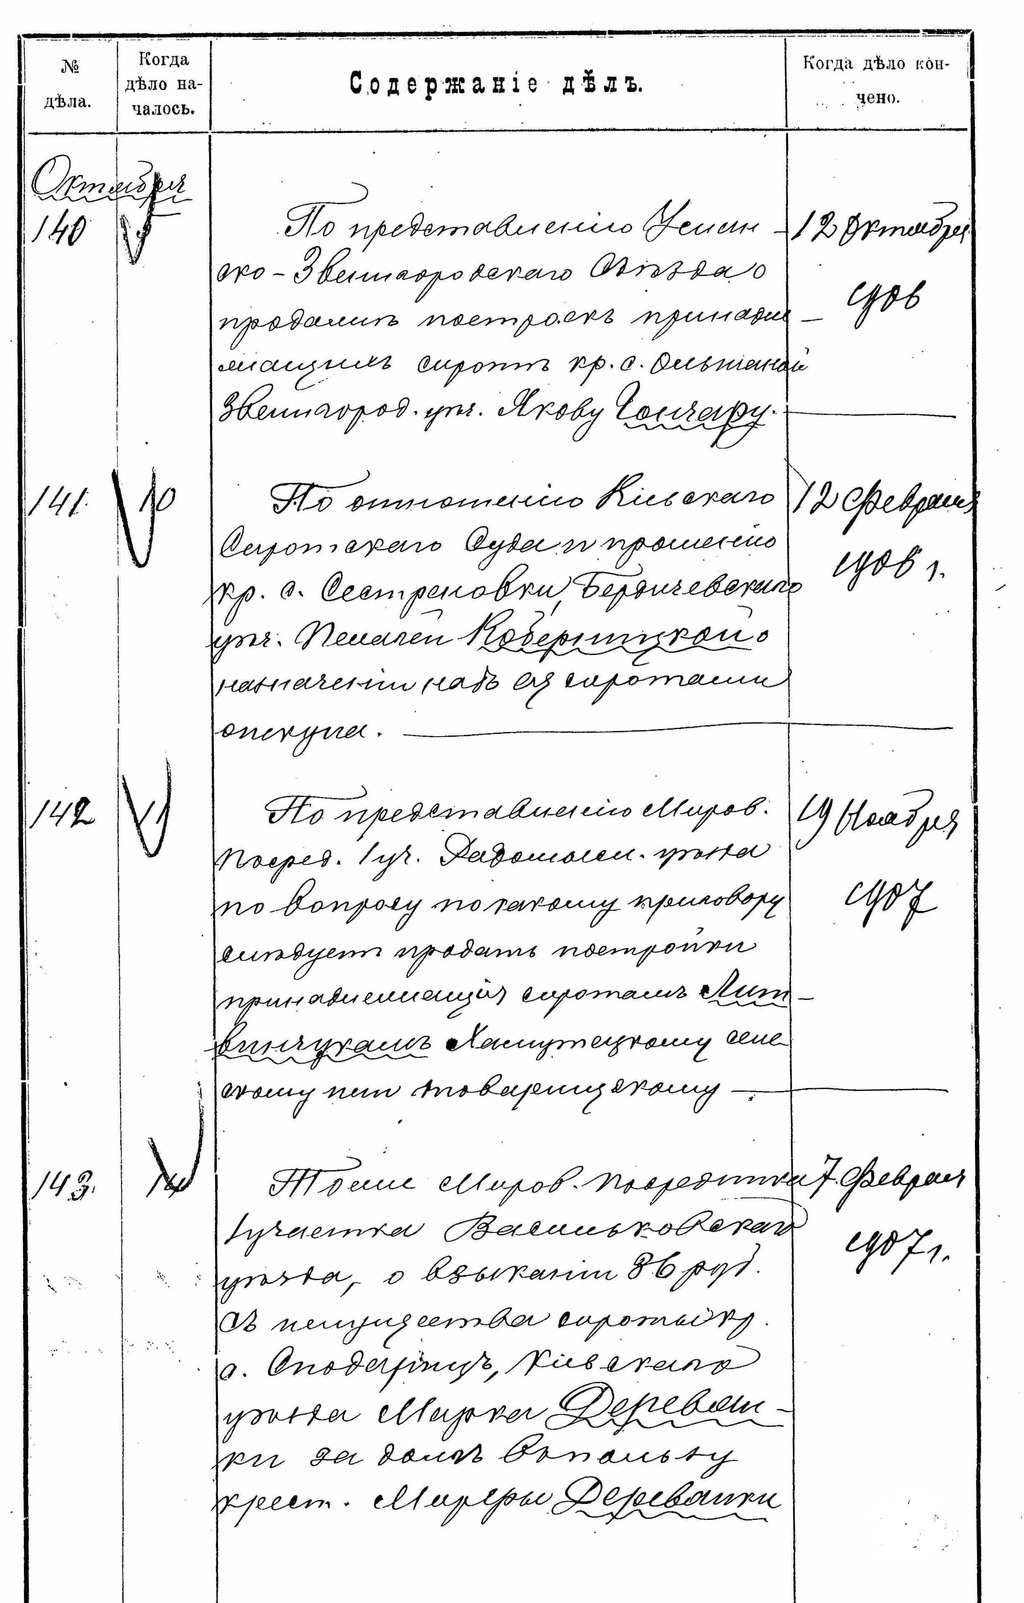 № дѣла.
Когда дѣло началось.
Содержаніе дѣлъ.
Когда дѣло кончено.
Октября
140 5
По представленію Уман-
ско-Звенигородскаго Съѣзда о
продажѣ построекъ принадле-
жащихъ сиротѣ кр. с. Ольшаной
Звенигород. уѣз. Якову Гончару.
12 Октября
1906
141. 10
По отношенію Кіевскаго
Сиротскаго Суда и прошенію
кр. с. Сестреновки, Бердичевскаго
уѣз. Пелагеи Коберницкой о
назначеніи надъ ея сиротами
опекуна.
12 Февраля
1906 г.
142 11
По представленію Миров.
Посред. 1 уч. Радомысл. уѣзда
по вопросу по какому приговору
слѣдуетъ продать постройки
принадлежащія сиротамъ Лит-
винчукамъ сель-
скому или товарищескому
19 Ноября
1907
143. 14
Тоже Миров. Посредника
1 участка Васильковскаго
уѣзда, о взысканіи 86 руб.
съ имущества сироты кр.
с. Кіевскаго
уѣзда Марка Деревян-
ки за долгъ въ пользу
крест. Деревянки
7 Февраля
1907 г.